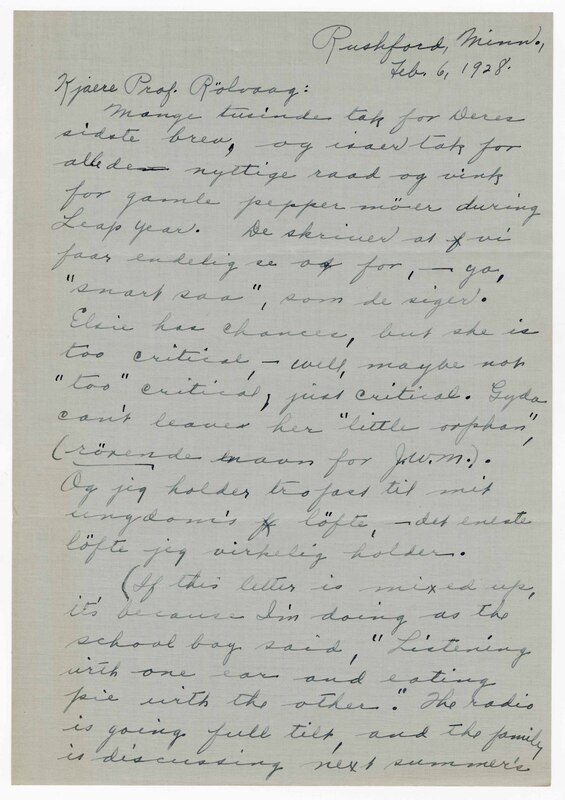 Rushford, Minn.,
Feb. 6, 1928.
Kjaere Prof. Rölvaag:
Mange tusinde tak for Deres
sidste brev, og isaer tak for
alle de nyttige raad og vink
for gamle peppermöier during
Leap Year. De skriver at vi
faar endelig se os for, — ja,
"snart saa", som de siger.
Elsie has chances, but she is
too critical, — well, maybe not
"too" critical, just critical. Gyda
can't leave her "little orphan",
(rörende navn for J.W.M.).
Og jeg holder trofast til mit
ungdom's löfte, — det eneste
löfte jeg virkelig holder.
(If this letter is mixed up,
it's because I'm doing as the
school boy said, "Listening
with one ear and eating
pie with the other." The radio
is going full tilt, and the family
is discussing next summer's